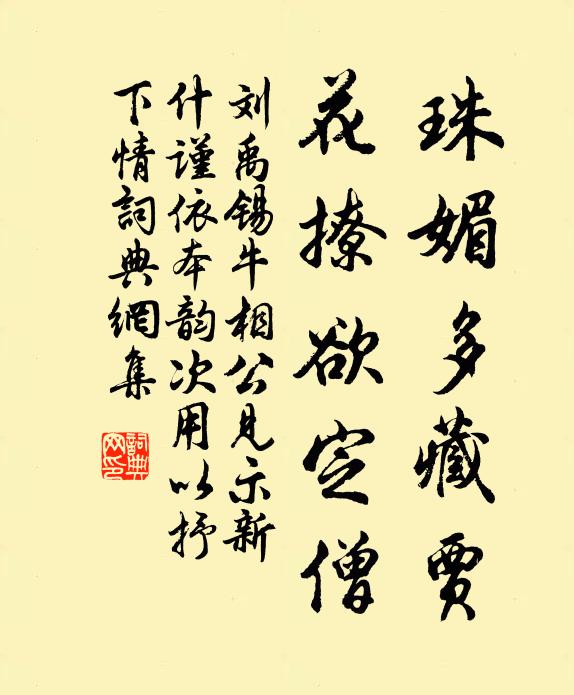 珠媚多藏賈
花撩欲定僧
刘禹锡牛相公見示新
什謹依本韵次用以抒
下情詞典網集
詞典网印